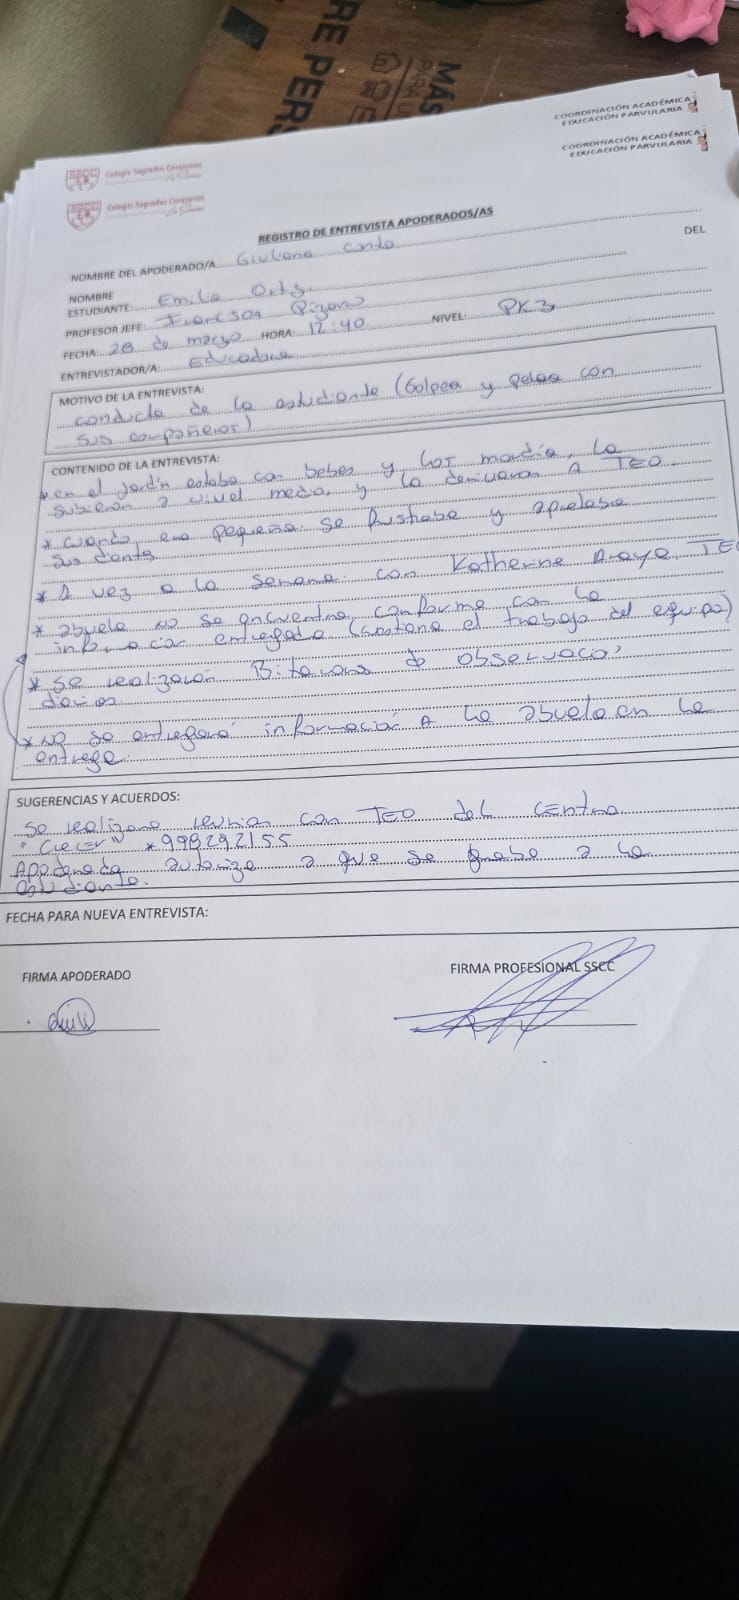 RE PERS
MÁS
PARA
COORDINACIÓN ACADÉMICA
EDUCACIÓN PARVULARIA
COORDINACIÓN ACADÉMICA
EDUCACIÓN PARVULARIA
SSCC Colegio Sagrados Corazones
SSCC Colegio Sagrados Corazones
REGISTRO DE ENTREVISTA APODERADOS/AS
NOMBRE DEL APODERADO/A Giuliana
NOMBRE DEL
ESTUDIANTE: Emilia Ortiz.
PROFESOR JEFE: Francisca Pizarro
FECHA: 28 de marzo HORA: 12:40 NIVEL: PK3
ENTREVISTADOR/A: Educadora
MOTIVO DE LA ENTREVISTA:
conducta de la estudiante (Golpea y pelea con
sus compañeros)
CONTENIDO DE LA ENTREVISTA:
* en el jardín estaba con bebes y los mordía, la
subieron a nivel medio, y la derivaron A TEO
* cuando era pequeña se frustraba y apretaba
sus dientes
* 1 vez a la semana con Katherine Araya, TEO
* abuela no se encuentra conforme con la
información entregada (cuestiona el trabajo del equipo)
* se realizarán Bitacoras de observación
diarias
* NO se entregará información A la abuela en la
entrega.
SUGERENCIAS Y ACUERDOS:
se realizara reunion con TEO del centro
"Crecer" *999292155
Apoderada autoriza a que se grabe a la
estudiante.
FECHA PARA NUEVA ENTREVISTA:
FIRMA APODERADO
FIRMA PROFESIONAL SSCC